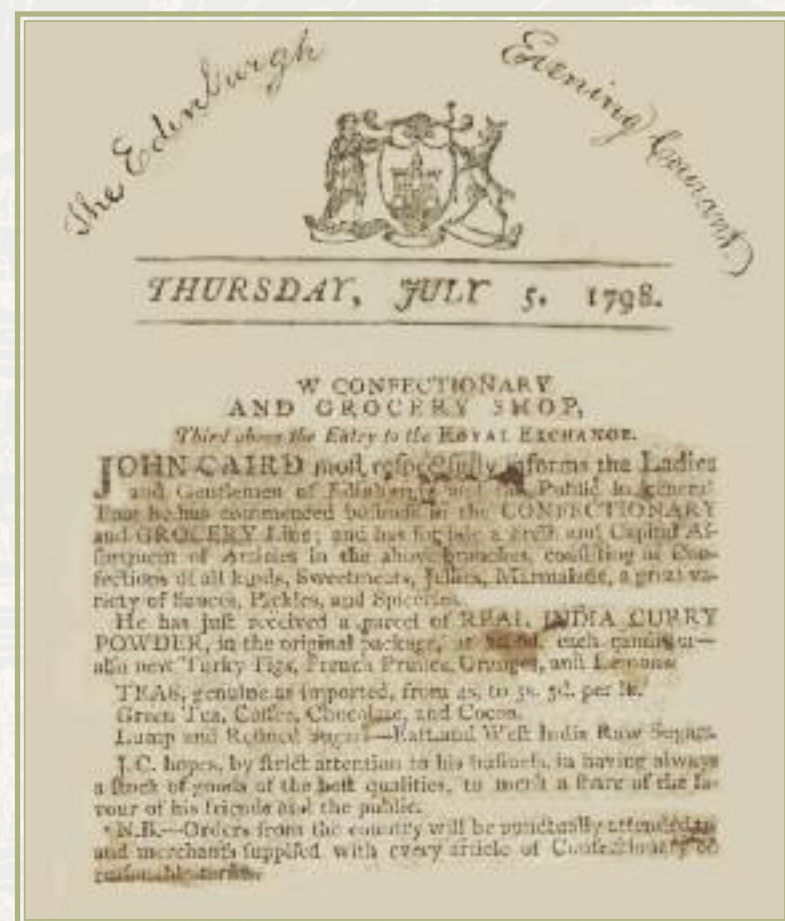 The Edinburgh Evening Courant
THURSDAY, JULY 5. 1798.
W CONFECTIONARY
AND GROCERY SHOP,
Third above the Entry to the ROYAL EXCHANGE.
JOHN CAIRD moſt reſpectfully informs the Ladies
and Gentlemen of Edinburgh and the Public in general
That he has commenced buſineſs in the CONFECTIONARY
and GROCERY Line; and has for ſale a freſh and Capital Aſ-
ſortment of Articles in the above branches, conſiſting of Con-
fections of all kinds, Sweetmeats, Jellies, Marmalade, a great va-
riety of Sauces, Pickles, and Spiceries.
He has juſt received a parcel of REAL INDIA CURRY
POWDER, in the original package, at each
alſo new Turky Figs, French Prunes, Oranges, and Lemons.
TEAS, genuine as imported, from 4s. to per lb.
Green Tea, Coffee, Chocolate, and Cocoa.
Lump and Refined Sugars—Eaſt and Weſt India Raw Sugars.
J.C. hopes, by ſtrict attention to his buſineſs, in having always
a ſtock of goods of the beſt qualities, to merit a ſhare of the fa-
vour of his friends and the public.
N.B.—Orders from the country will be punctually attended to
and merchants ſupplied with every article of Confectionary on
reaſonable terms.